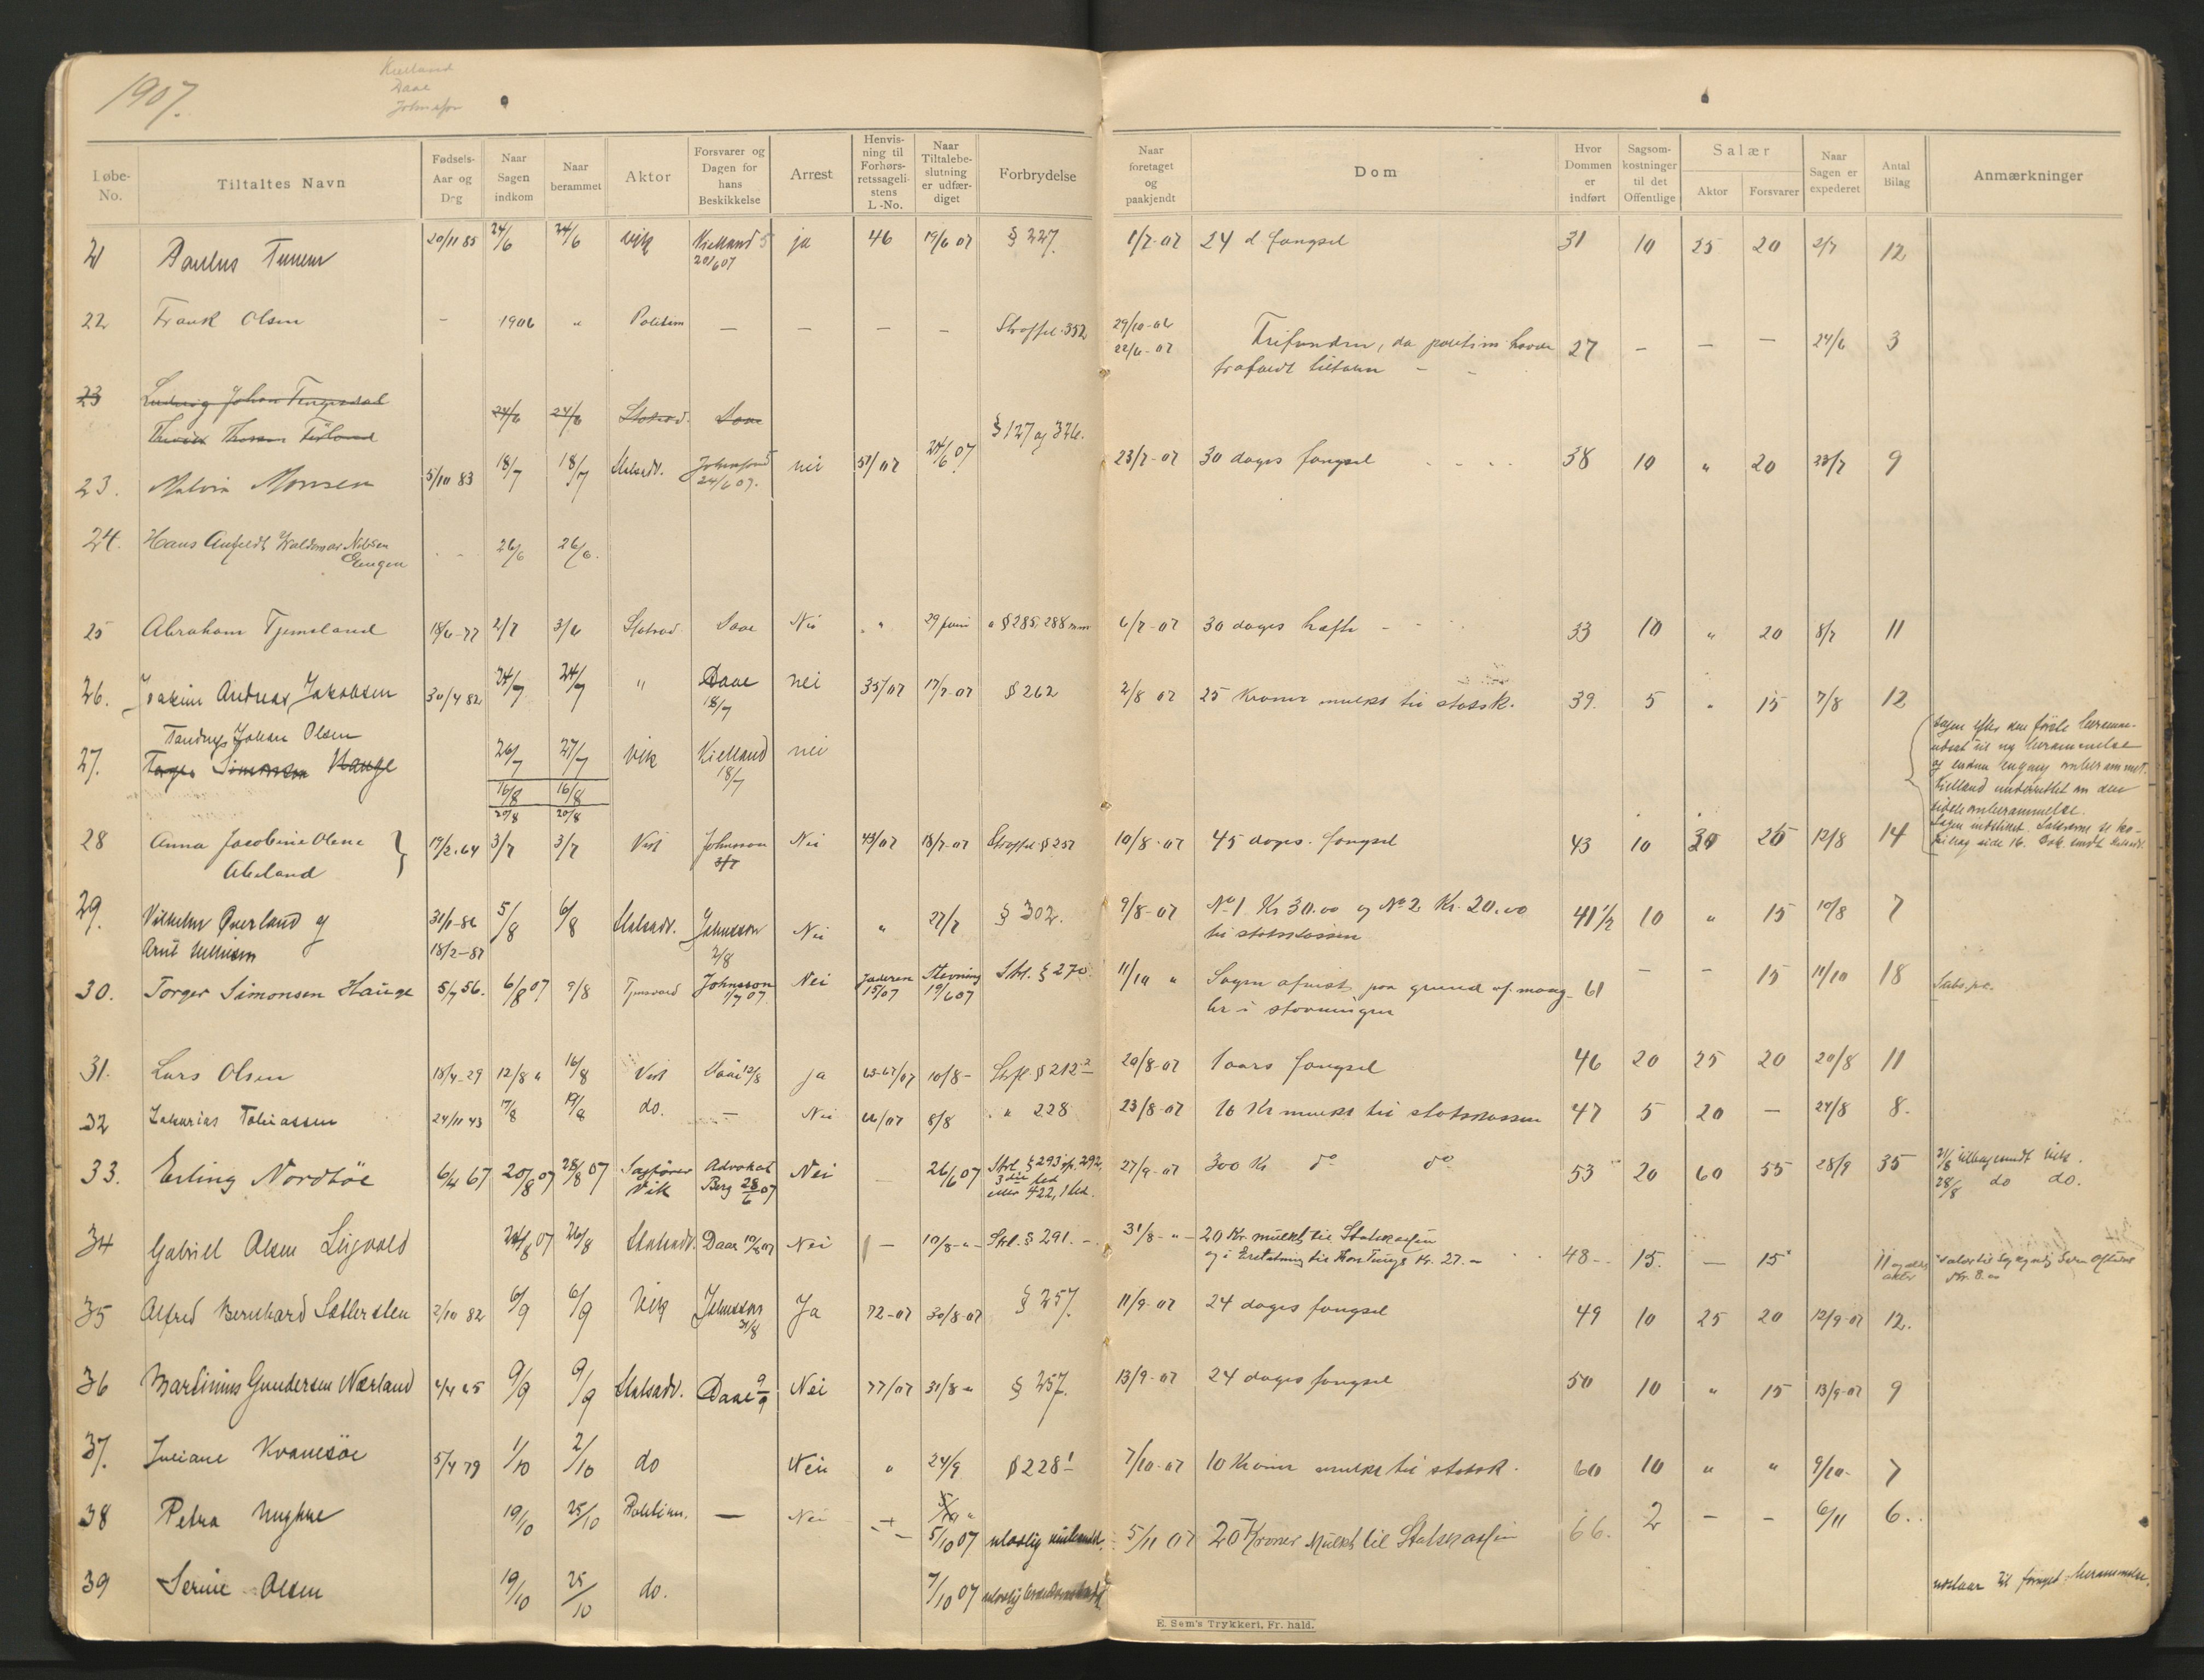 1907.
Kielland
Daae
Johnsson
Løbe-No.
Tiltaltes Navn
Fødsels-Aar og Dag
Naar Sagen indkom
Naar berammet
Aktor
Forsvarer og Dagen for hans Beskikkelse
Arrest
Henvisning til Forhørsretssagelistens L.-No.
Naar Tiltalebeslutning er udfærdiget
Forbrydelse
Naar foretaget og paakjendt
Dom
Hvor Dommen er indført
Sagsomkostninger til det Offentlige
Salær
Aktor
Forsvarer
Naar Sagen er expederet
Antal Bilag
Anmærkninger
21 Paulus 20/11 85 24/6 24/6 Vik Kielland 20/6 07 ja 46 19/6 07 § 227. 1/7-07 24 d fængsel 31 10 25 20 2/7 12
22 Frank Olsen - 1906 " Politim — — — — Straffel. 352 29/10-06
22/6-07 Frifunden, da politim havde 27 — — — 24/6 3
frafaldt tiltalen
23 Ludvig Johan 24/6 24/6 Statsad. Daae
§ 127 og 326.
23. Malvin Monsen 5/10 83 18/7 18/7 Statsadv. Johnsson 24/6 07. nei 51/07 24/6 07 23/7-07 30 dages fængsel 38 10 " 20 23/7 9
24. Hans Waldemar Nilsen 26/6 26/6.
Engen
25 Abraham Tjemsland 18/6-77 2/7 3/6 Statsad Daae Nei " 29 juni § 285, 288 6/7-07 30 dages hæfte 33 10 " 20 8/7 11
26. Joakim Andreas Jakobsen 30/4 82 24/7 24/7 " Daae 18/7 nei 35/07 17/7-07 § 262 2/8 07 25 Kroner mulkt til statsk. 39. 5 " 15 7/8 12
Johan Olsen
27. Simonsen Hauge 26/7 27/7 Vik Kielland 18/7 nei
16/8 16/8
20/8 20/8
Sagen efter den første beramme-
udsat til ny berammelse
og endnu engang omberammet.
Kielland underrettet om den
sidste omberammelse.
28 Anna Jacobine Olene 17/2-64 3/7 3/7 Vik Johnsson Nei 43/07 18/7-07 Straffel. § 257 10/8-07 45 dages fængsel 43 10 30 25 12/8 14
Abeland
29. Vilhelm Øverland og 31/1-86 5/8 6/8 Statsadv. Johnsson 2/8 Nei " 27/7 § 302. 9/8-07 No 1 Kr 30.00 og No 2 Kr. 20.00 41 1/2 10 " 15 10/8 7
Arnt 18/2-87 til statskassen
30. Torger Simonsen Hauge 5/7 56. 6/8 07 9/8 Johnsson 1/7 07 Nei Jæderen 15/07 Stevning 19/6 07 Strl. § 270. 11/10 " Sagen afvist paa grund af mang- 61 — — 15 11/10 18
ler i stevningen
31. Lars Olsen 18/4-29 12/8 " 16/8 Vik Daae 12/8 ja 65-67/07 10/8- Strfl. § 212-2 20/8-07 1 aars fængsel 46 20 25 20 20/8 11
32 Zakarias Tobiassen 24/11 43 17/8 19/8 do. — Nei 66/07 8/8 " 228 23/8-07 10 Kr mulkt til statskassen 47 5 20 — 24/8 8.
33. Erling Nordtöe 6/4 67 20/8 07 28/8 07 Sagfører Vik Advokat Berg 28/6 07 Nei — 26/6 07 Strl. § 293 jf. 292, 3die led eller 422, 1 led. 27/9-07 300 Kr do do 53 20 60 55 28/9 35 21/8 tilbagesendt Vik.
28/8 do do.
34 Gabriel Olsen Sigvald 24/8 07 26/8 Statsadv. Daae 10/8 07 Nei — 10/8-"- Strl. § 291. 31/8-"- 20 Kr. mulkt til Statskassen
og i Erstatning til Kr. 27.- 48- 15. — 15 11
35 Alfred Bernhard Sætlersten 2/10 82 6/9 6/9 Vik Johnsson 31/8 Ja 72-07 30/8-07 § 257. 11/9-07 24 dages fængsel 49 10 25 20 12/9-07 12.
36 Martinius Gundersen Nærland 4/4 25 9/9 9/9 Statsadv. Daae 9/9 Nei 77/07 31/8-" § 257. 13/9-07 24 dages fængsel 50 10 " 15 13/9-07 9
37. Juliane Kvamsöe 5/4 79 1/10 2/10 do Nei " 24/9 § 228 1- 7/10-07 10 Kroner mulkt til statsk. 60 10 " " 9/10- 7
38 Petra 19/10 25/10 Politim. — Nei — 5/10 07 ulovlig 5/11 07 20 Kroner Mulkt til Statskassen 66. 2 — — 6/11 6.
39 Serine Olsen 19/10 25/10 do. 7/10 07 ulovlig
udslaar til fornyet berammelse.
E. Sem's Trykkeri, Fr.hald.